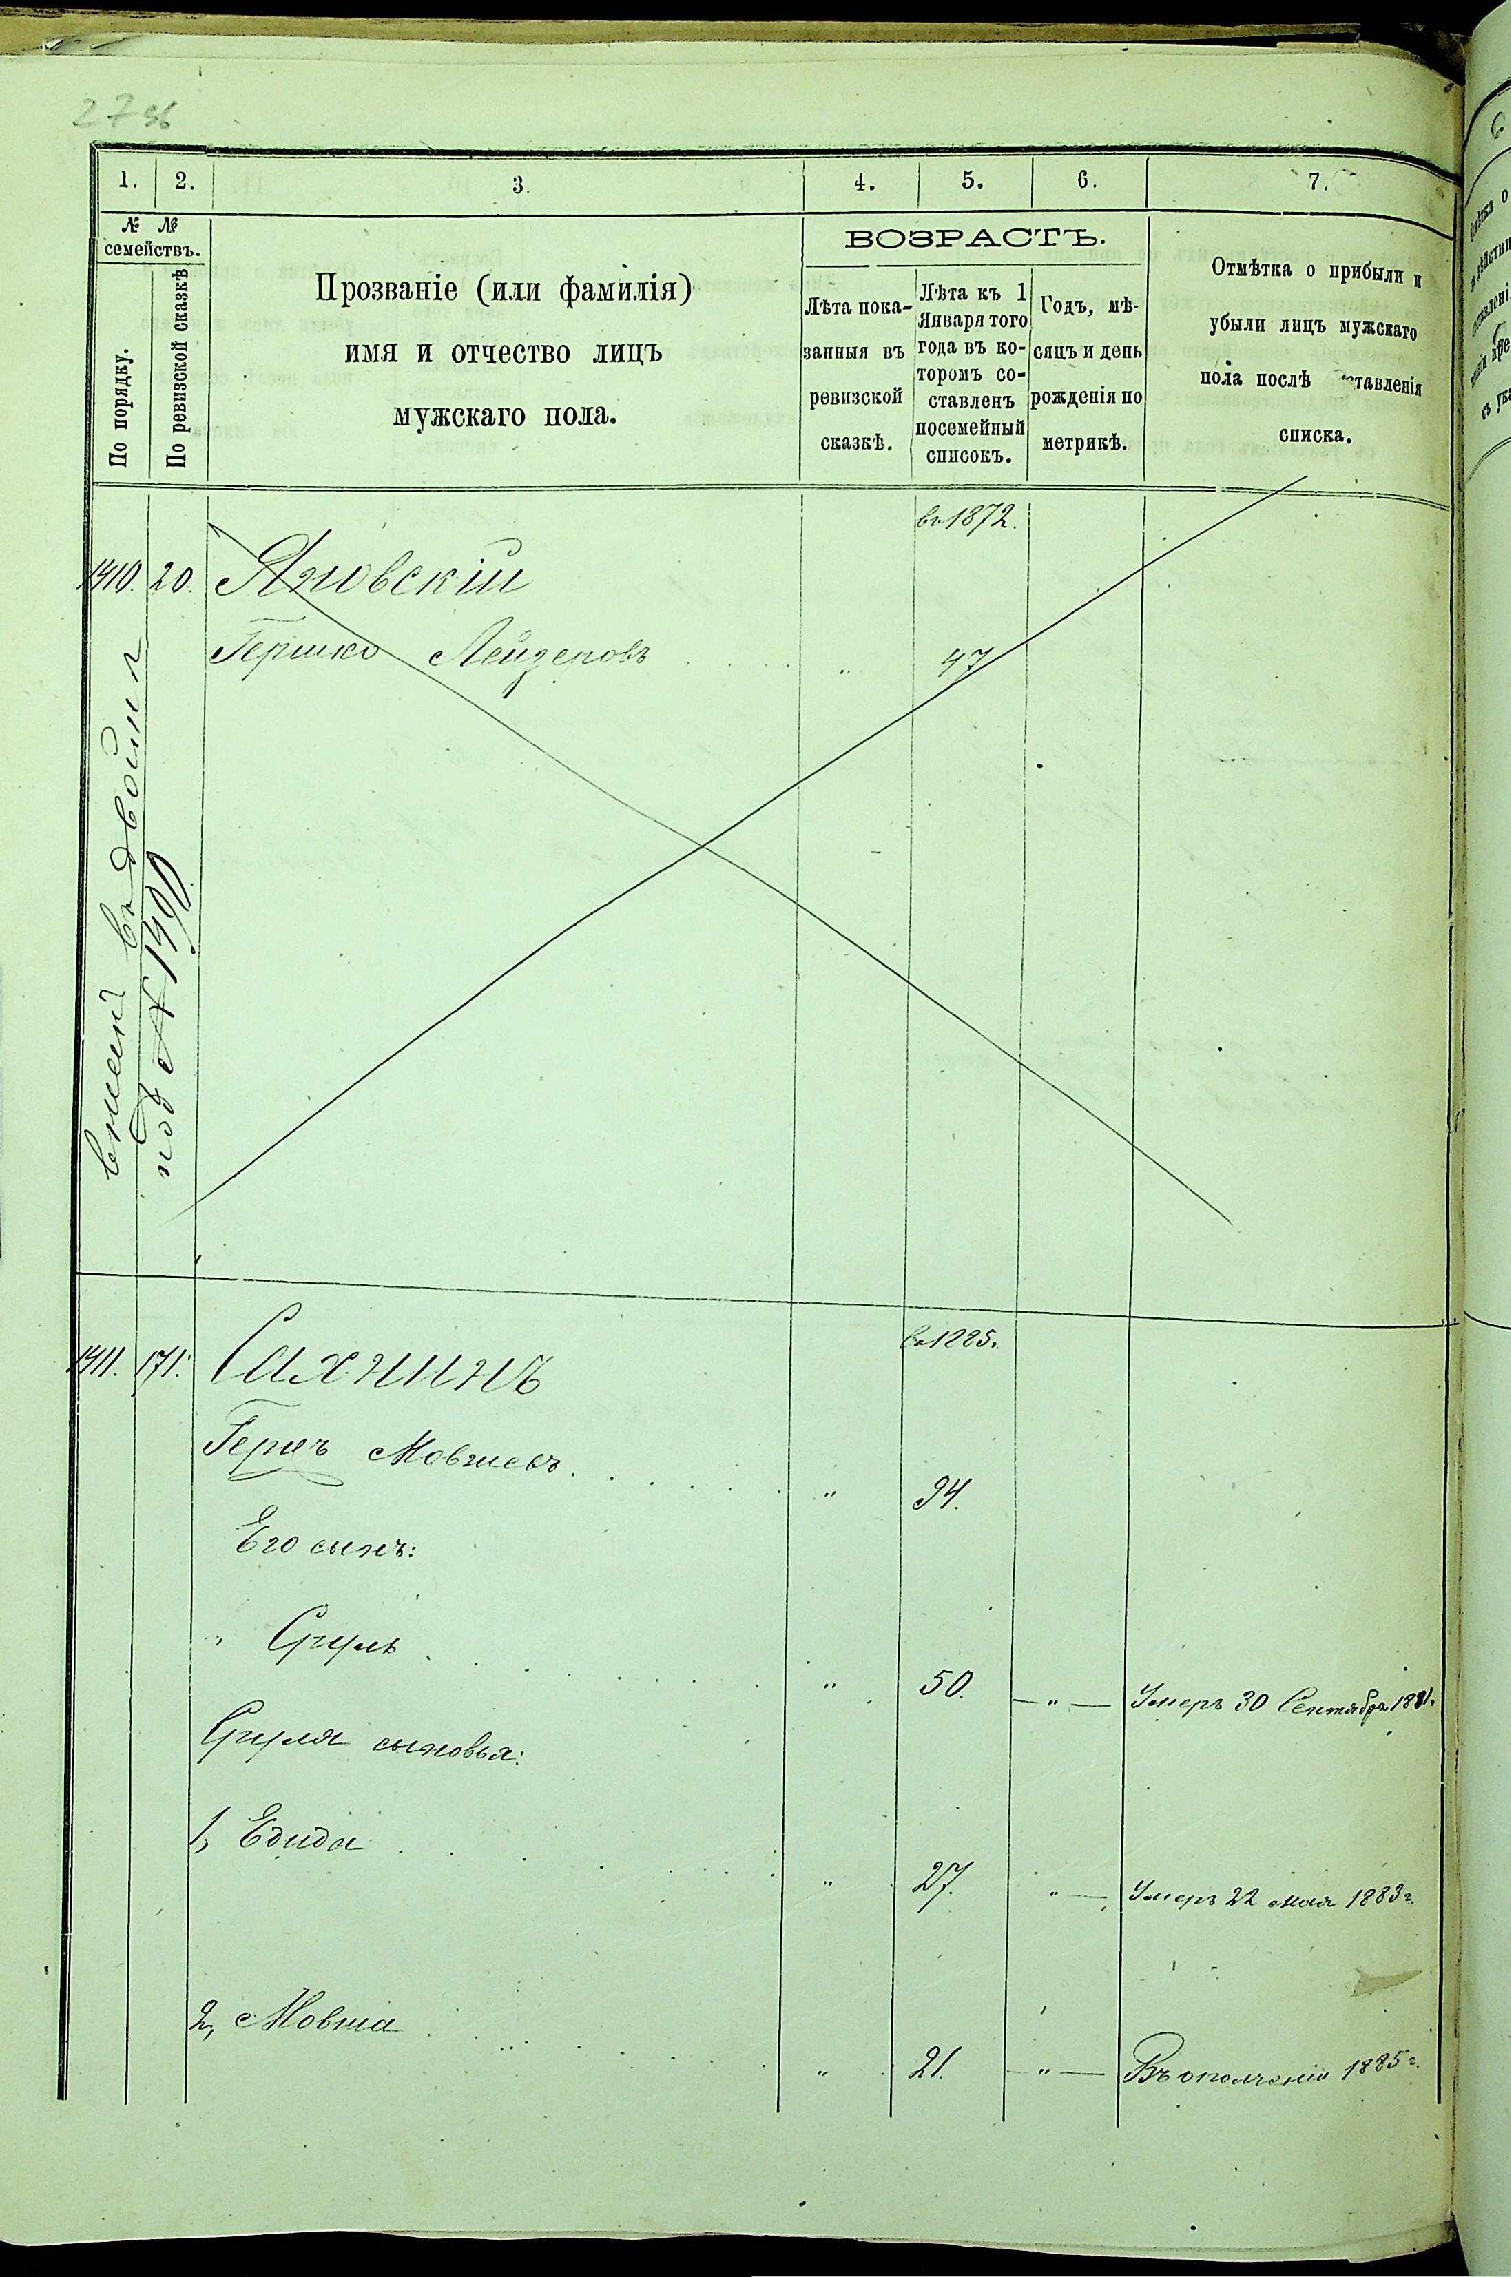 2796
1. 2. 3. 4. 5. 6. 7.
№ № семействъ.
По порядку.
По ревизской сказкѣ
Прозваніе (или фамилія)
имя и отчество лицъ
мужскаго пола.
ВОЗРАСТЪ.
Лѣта пока-
занныя въ
ревизской
сказкѣ.
Лѣта къ 1
Января того
года въ ко-
торомъ со-
ставленъ
посемейный
списокъ.
Годъ, мѣ-
сяцъ и день
рожденія по
метрикѣ.
Отмѣтка о прибыли и
убыли лицъ мужскаго
пола послѣ ставленія
списка.
въ 1872.
1410. 20. Яновскій
Гершко Лейзеровъ " 47
въ двойнѣ
под № 1490
въ 1885.
1411. 171. Сахнинъ
Герцъ Мовшевъ " 94.
Его сынъ:
" Сруль " 50. " Умеръ 30 Сентября 1881г.
Сруля сыновья:
1, Едида " 27. " Умеръ 22 мая 1883г.
2, Мовша " 21. " Въ ополченіи 1885г.